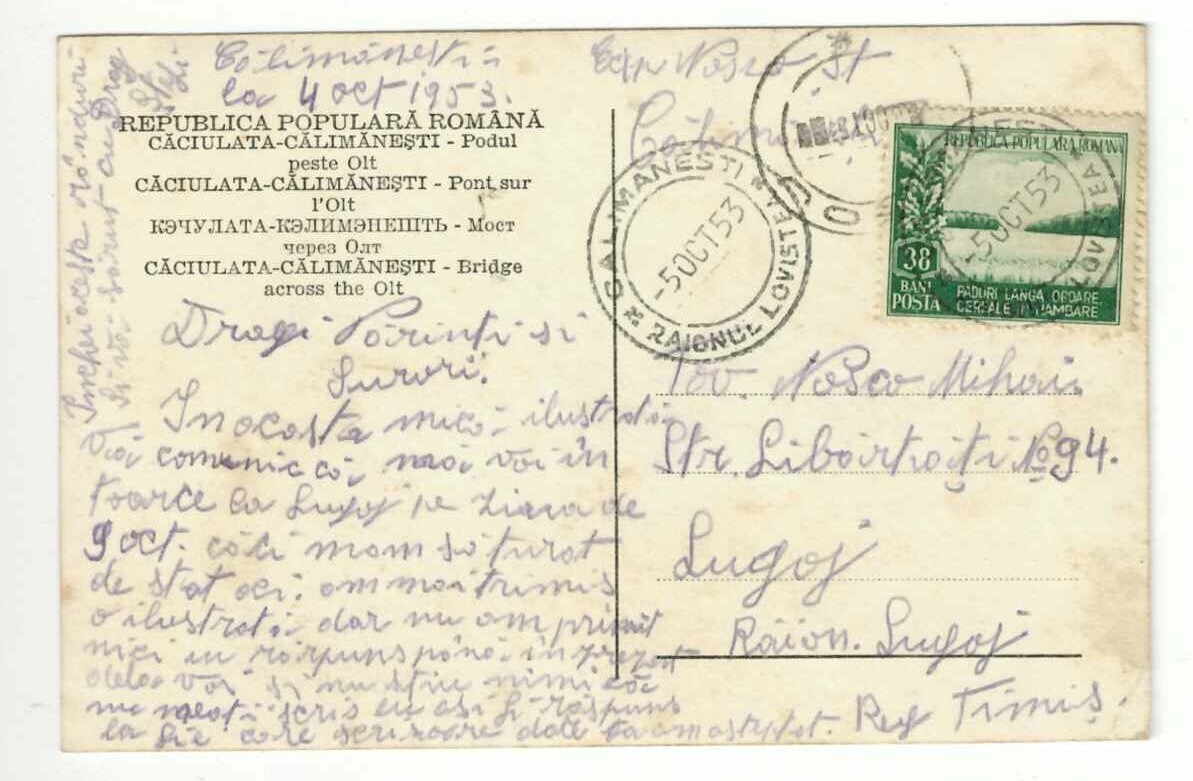 Călimănești
la 4 oct 1953.
REPUBLICA POPULARĂ ROMÂNĂ
CĂCIULATA-CĂLIMĂNEȘTI - Podul
peste Olt
CĂCIULATA-CĂLIMĂNEȘTI - Pont sur
l'Olt
КЭЧУЛАТА-КЭЛИМЭНЕШТЬ - Мост
через Олт
CĂCIULATA-CĂLIMĂNEȘTI - Bridge
across the Olt
Dragi Părinți si
Surori.
In acasta mică ilustrată
comunic că mă voi în
toarce la Lugoj pe ziua de
9 oct. căci mam săturat
de stat aci. am mai trimis
o ilustrată dar nu am primit
nici un răspuns până în prezent
dela voi și nu știu
scris
scrisoare
Închei aceste rânduri
Drag
Exp Nosco Șt
CALIMANESTI
-5 OCT 53
RAIONUL LOVISTEA
REPUBLICA POPULARA ROMANA
38
BANI
POSTA
PADURI LANGA OGOARE
CEREALE IN HAMBARE
-5 OCT 53
Tov. Nosco Mihai
Str. Libărtații No 94.
Lugoj
Răion. Lugoj
Reg Timiș.